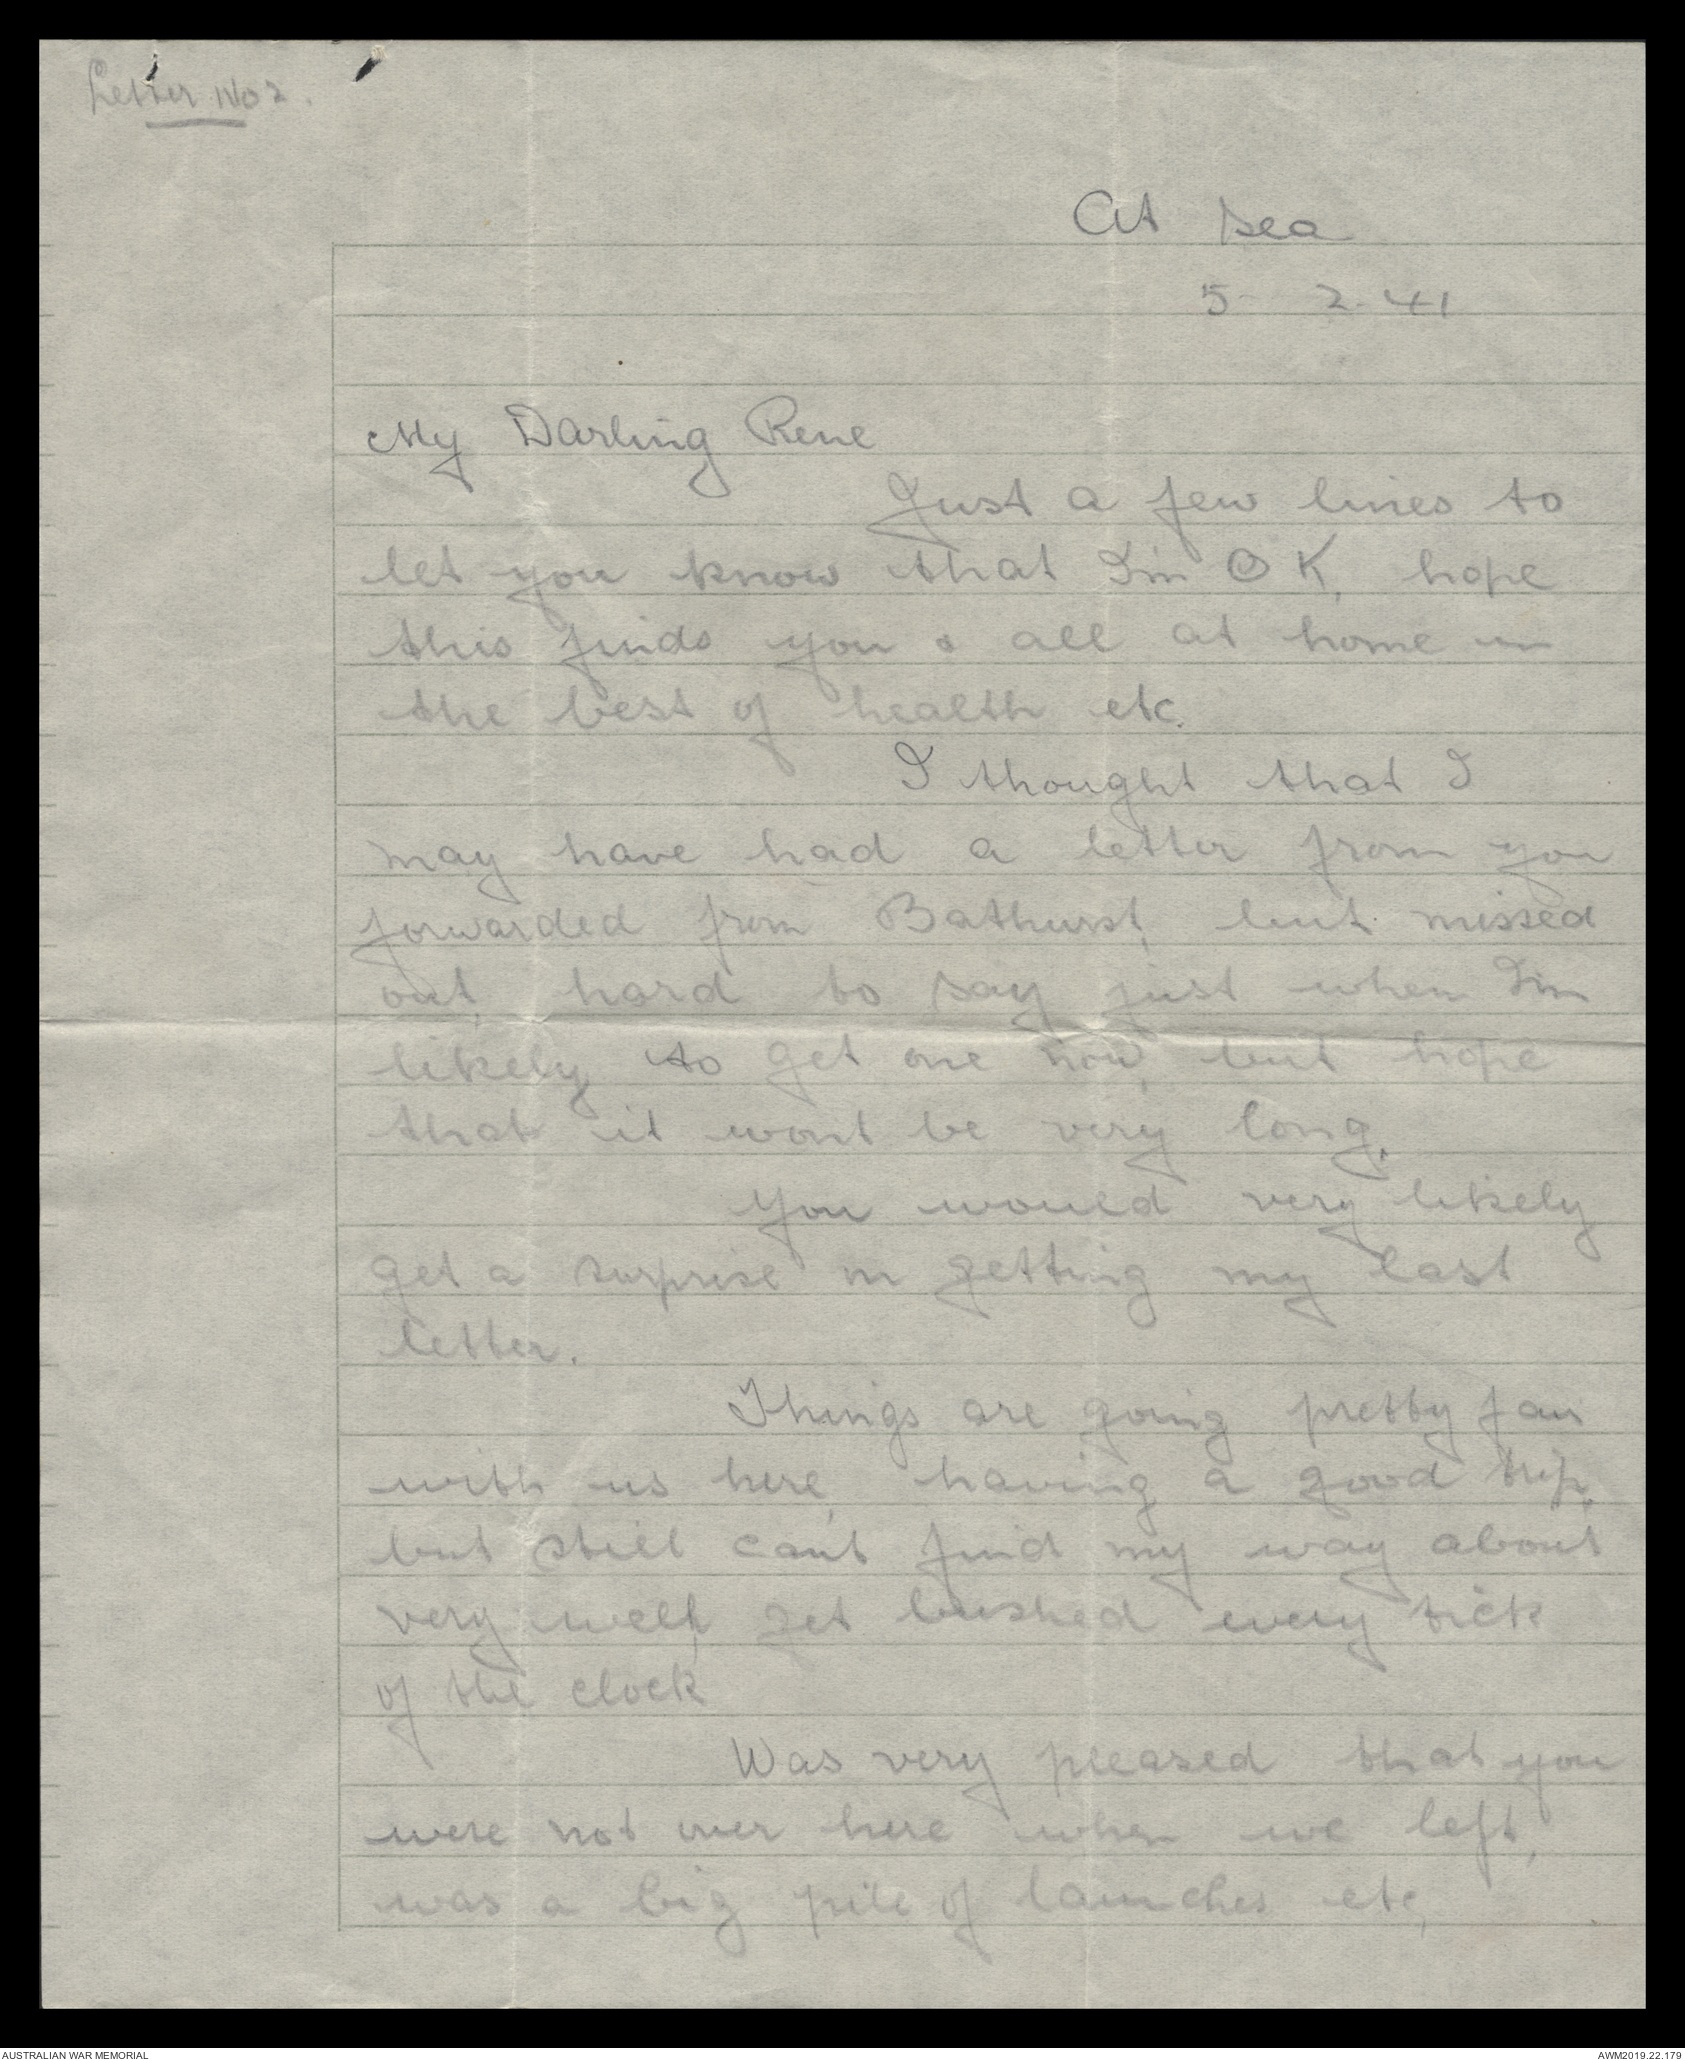 Letter No 2.
At Sea
5- 2-41
My Darling Rene
Just a few lines to
let you know that I'm O K, hope
this finds you & all at home in
the best of health etc.
I thought that I
may have had a letter from you
forwarded from Bathurst, but missed
out, hard to say just when I'm
likely to get one now, but hope
that it wont be very long.
You would very likely
get a surprise in getting my last
letter.
Things are going pretty fair
with us here, having a good trip,
but still can't find my way about
very well, get bushed every tick
of the clock
Was very pleased that you
were not over here when we left,
was a big pile of launches etc,
AUSTRALIAN WAR MEMORIAL
AWM2019.22.179